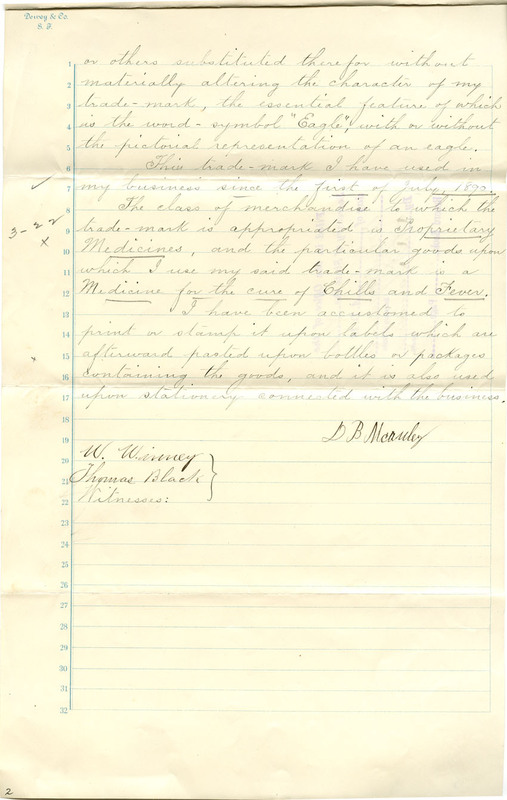 Dewey & Co.
S. F.
1 or others substituted therefor without
2 materially altering the character of my
3 trade-mark, the essential feature of which
4 is the word-symbol "Eagle", with or without
5 the pictorial representation of an eagle.
6 This trade-mark I have used in
7 my business since the first of July, 1890.
8 The class of merchandise to which the
9 trade-mark is appropriated is Proprietary
10 Medicines, and the particular goods upon
11 which I use my said trade-mark is a
12 Medicine for the cure of Chills and Fever.
13 I have been accustomed to
14 print or stamp it upon labels which are
15 afterward pasted upon bottles or packages
16 containing the goods, and it is also used
17 upon stationery connected with the business.
18
19 D B McAuley
20 W. Winney
21 Thomas Black
22 Witnesses:
23
24
25
26
27
28
29
30
31
32
3-22
x
2